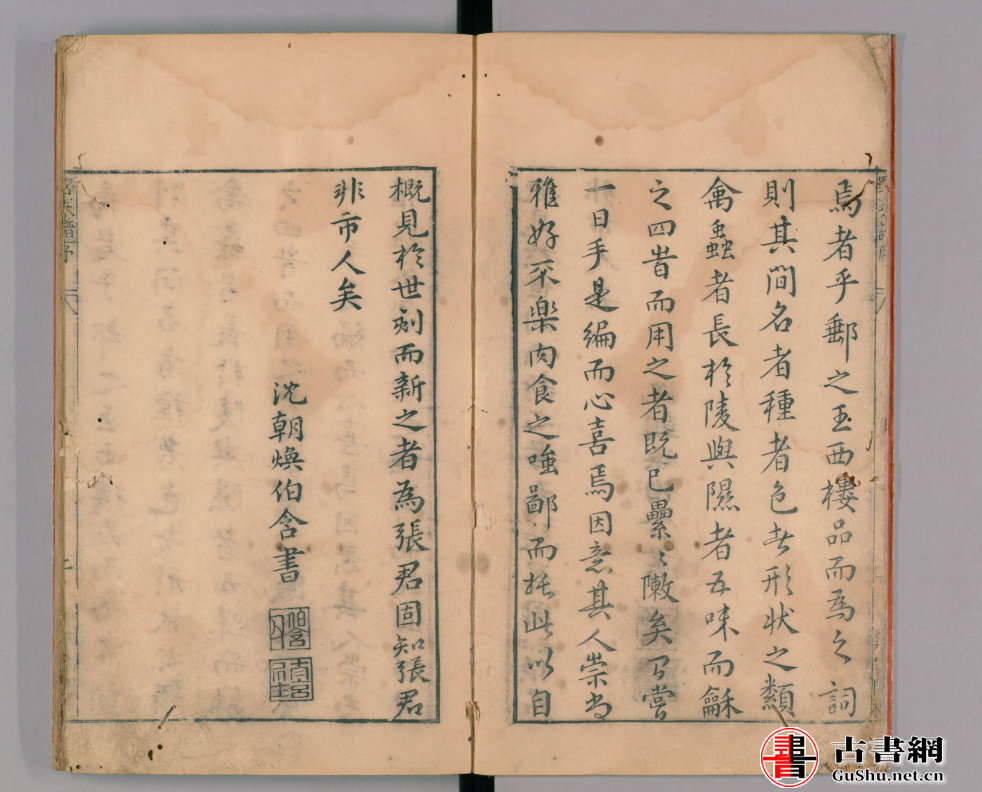 焉者乎鄴之玉西樓品而爲之詞
則其間名者種者色者形狀之類
禽蟲者長於陵與隰者五味而龢
之四者而用之者既已纍〻陳矣乃嘗
一日手是編而心喜焉因意其人崇尚
雅好不樂肉食之嗤鄙而托此以自
概見於世刻而新之者為張君固知張君
非市人矣
沈朝煥伯含書
伯含
書
古書網
GuShu.net.cn